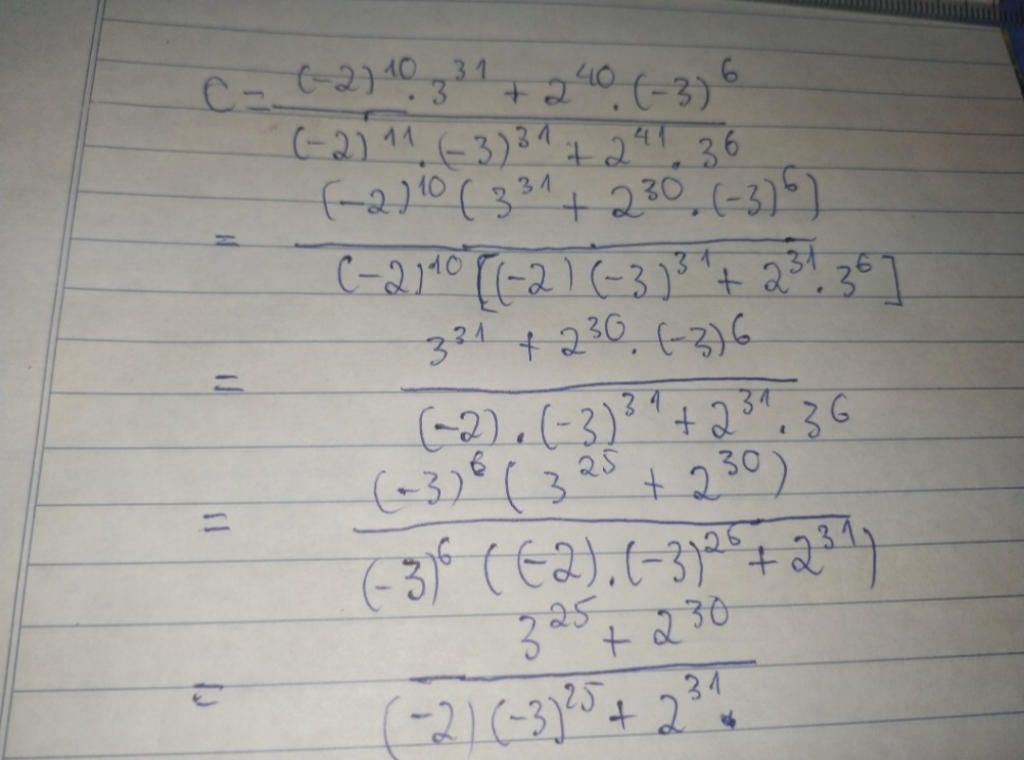 C = \frac{(-2)^{10} . 3^{31} + 2^{40} . (-3)^6}{(-2)^{11} . (-3)^{31} + 2^{41} . 3^6}
= \frac{(-2)^{10} ( 3^{31} + 2^{30} . (-3)^6 )}{(-2)^{10} [(-2) (-3)^{31} + 2^{31} . 3^6 ]}
= \frac{3^{31} + 2^{30} . (-3)^6}{(-2) . (-3)^{31} + 2^{31} . 3^6}
= \frac{(-3)^6 ( 3^{25} + 2^{30} )}{(-3)^6 ( (-2) . (-3)^{26} + 2^{31} )}
= \frac{3^{25} + 2^{30}}{(-2) (-3)^{25} + 2^{31} .}